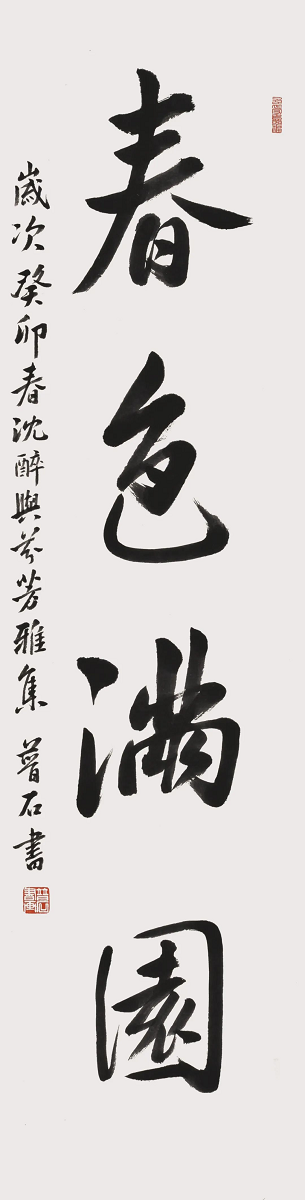 春色滿園
歲次癸卯春沈醉與芬芳雅集 普石書